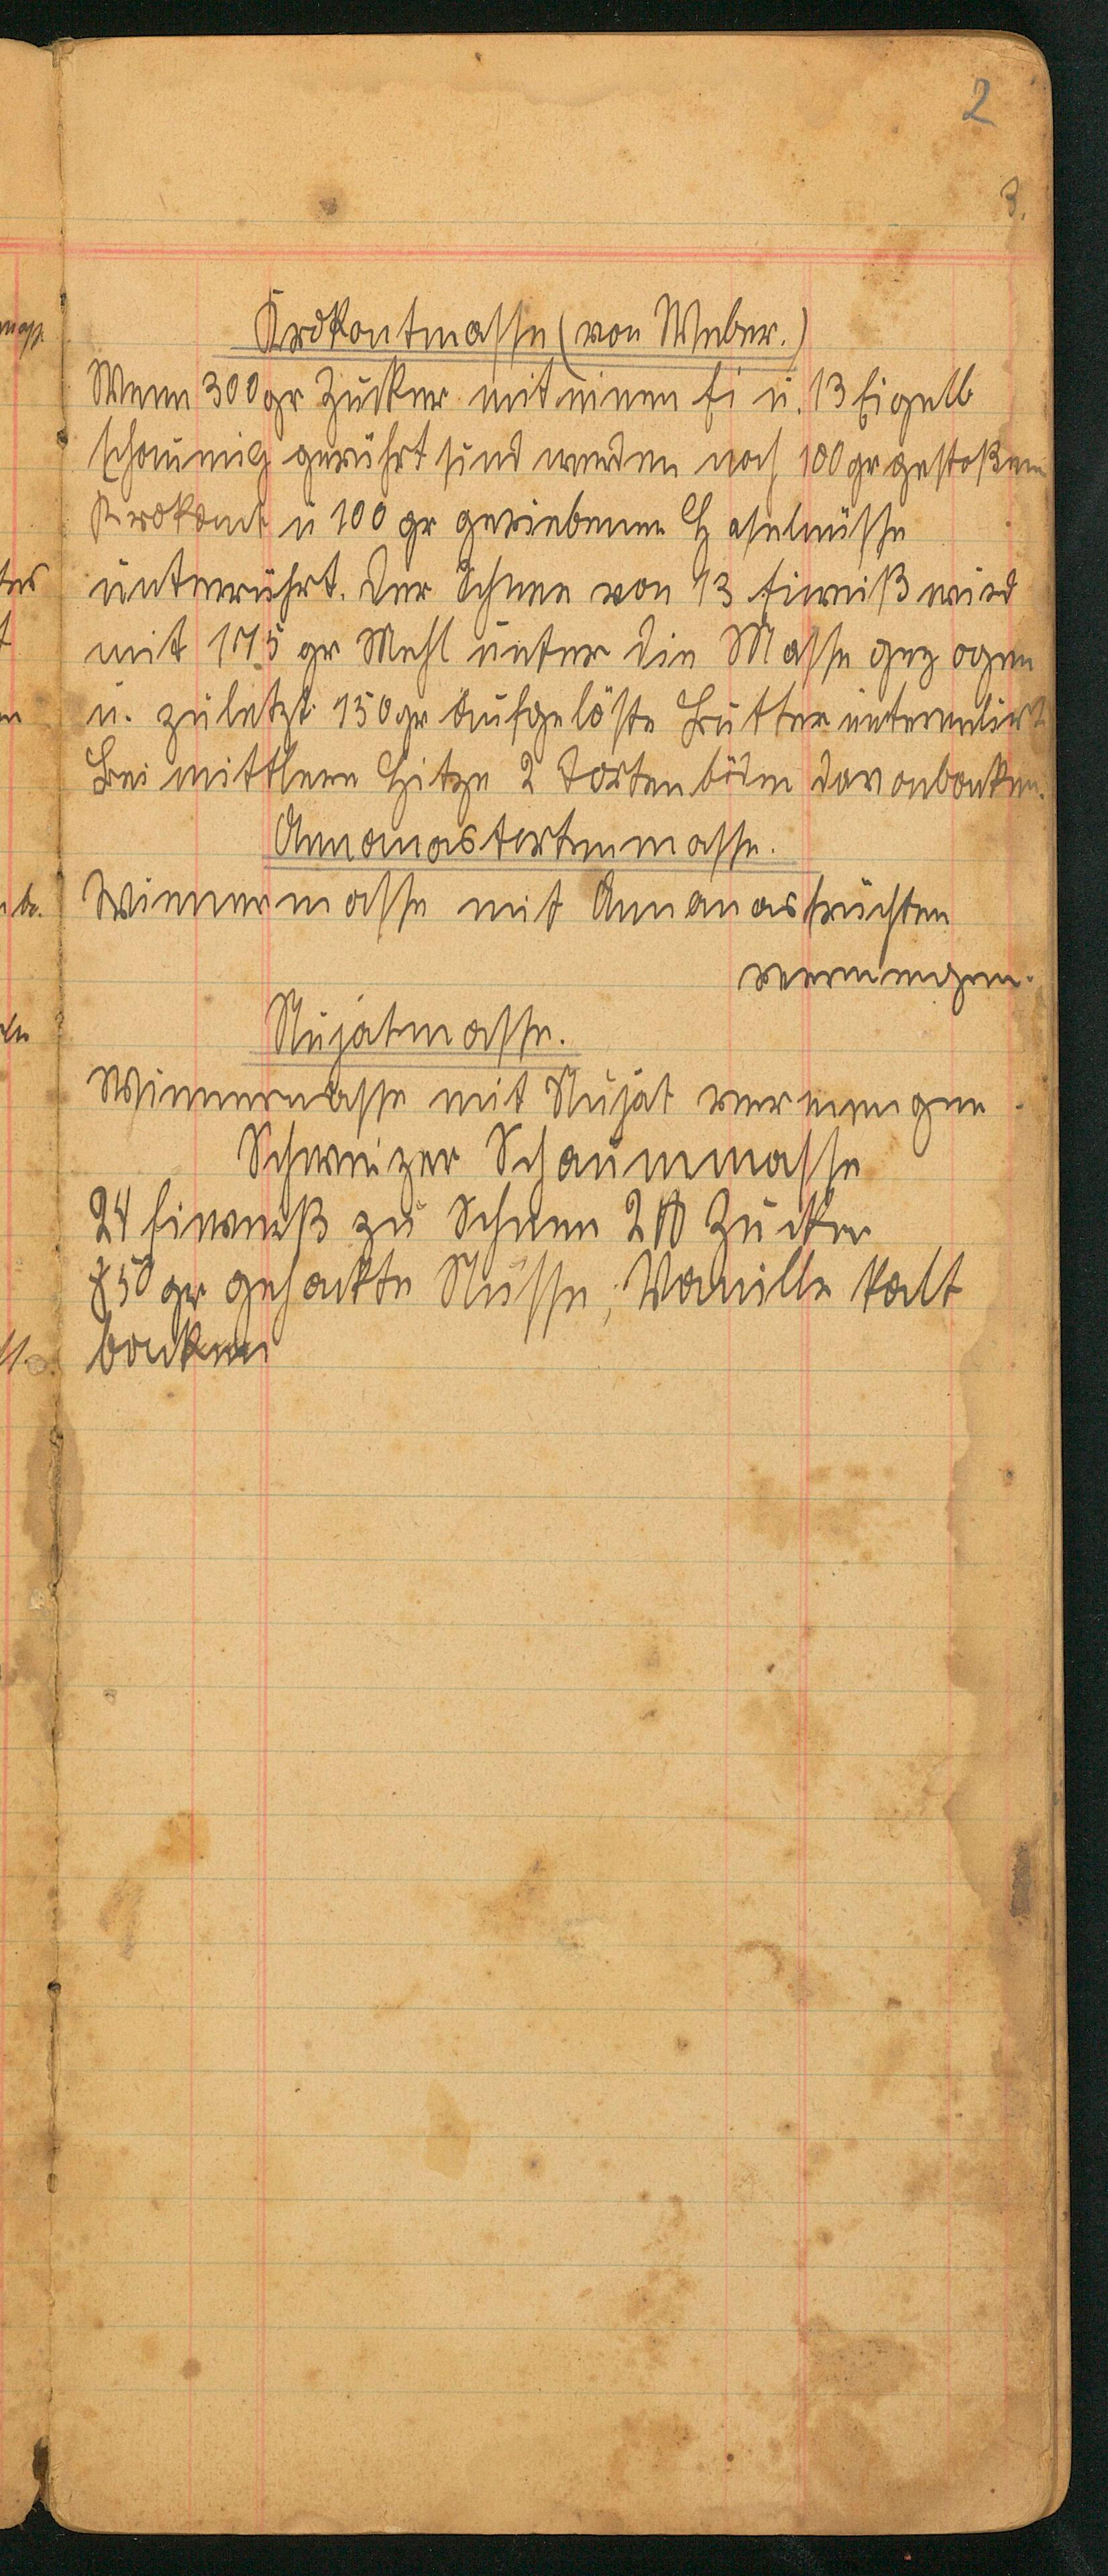 2
3.
Krokantmasse (von Weber.)
Wenn 300 gr Zucker mit einen Ei u. 13 Eigelb
schaumig gerührt sind werden noch 100 gr gestoßenen
Krokant u 100 gr geriebenen Haselnüsse
unterrührt. Der Schnee von 13 Eiweiß wird
mit 175 gr Mehl unter die Masse gezogen
u. zuletzt 150 gr aufgelöste Butter untermeliert
Bei mittlere Hitze 2 Tortenböden davon backen.
Annanastortenmasse.
Wienermasse mit Annanasfrüchten
vermengen.
Nujatmasse.
Wienermasse mit Nujat vermengen.
Schweizer Schaummasse
24 Eiweiß zu Schnee 2 ℔ Zucker
250 gr gehackte Nüsse, Vanille kalt
backen